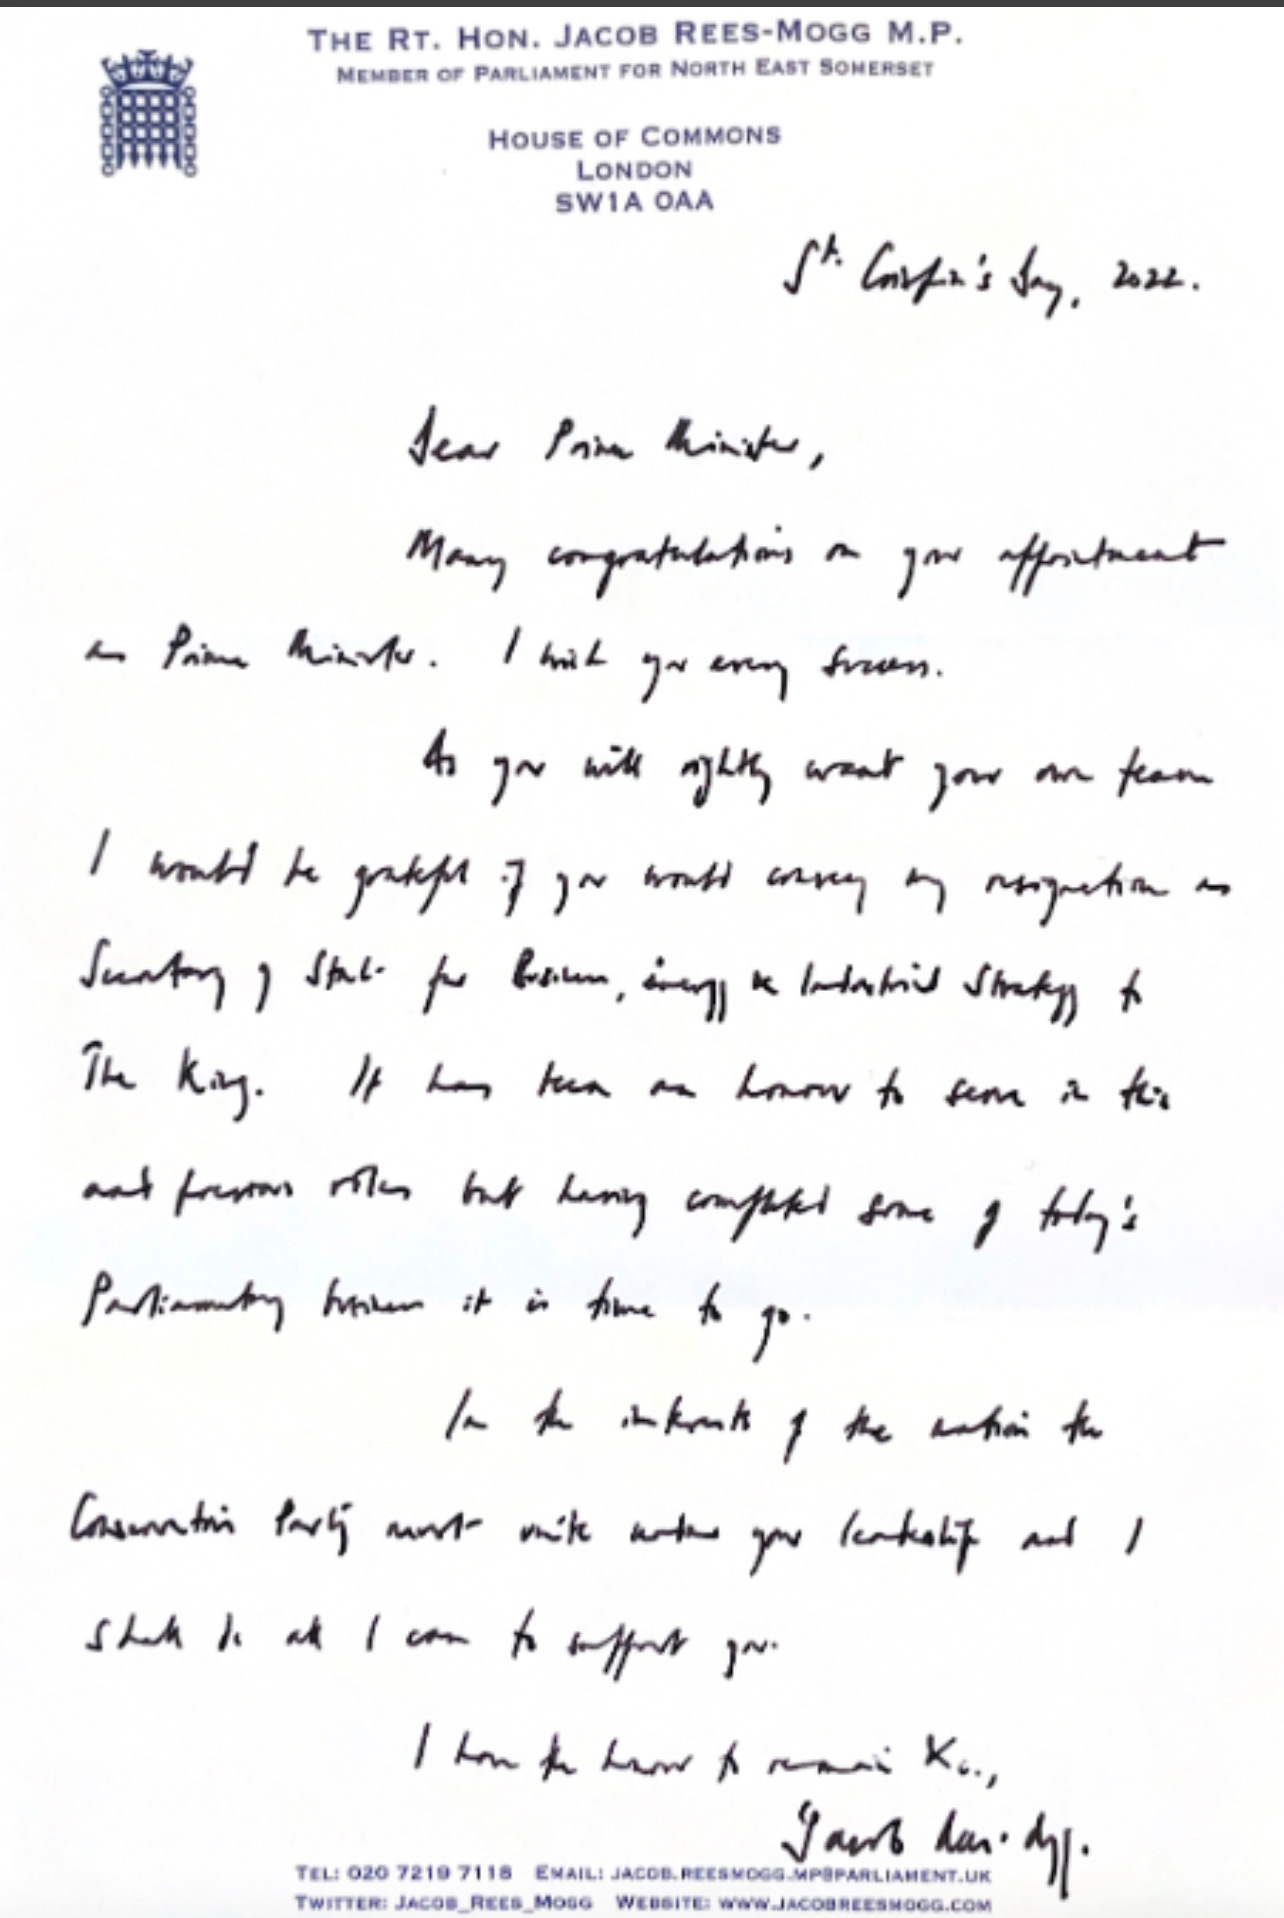 THE RT. HON. JACOB REES-MOGG M.P.
MEMBER OF PARLIAMENT FOR NORTH EAST SOMERSET
HOUSE OF COMMONS
LONDON
SW1A 0AA
St. Crispin's Day, 2022.
Dear Prime Minister,
Many congratulations on your appointment
as Prime Minister. I wish you every success.
As you will rightly want your own team
I would be grateful if you would convey my resignation as
Secretary of State for Business, Energy & Industrial Strategy to
The King. It has been an honour to serve in this
and previous rôles but having completed some of today's
Parliamentary business it is time to go.
In the interests of the nation the
Conservative Party must unite under your leadership and I
shall do all I can to support you.
I have the honour to remain &c.,
Jacob Rees-Mogg.
TEL: 020 7219 7118 EMAIL: JACOB.REESMOGG.MP@PARLIAMENT.UK
TWITTER: JACOB_REES_MOGG WEBSITE: WWW.JACOBREESMOGG.COM